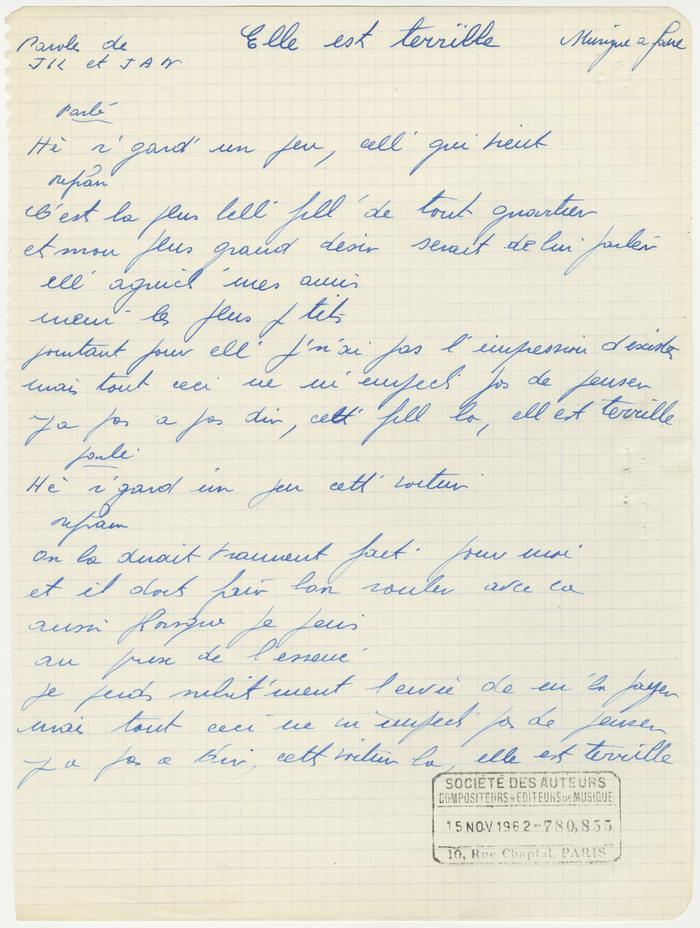 Paroles de
JK et JAN
Elle est terrible
Musique a faire
Parlé
Hé r'gard' un peu, cell' qui vient
refrain
C'est la plus bell' fill' de tout quartier
et mon plus grand désir serait de lui parler
ell' aguich' mes amis
mem' les plus p'tits
pourtant pour ell' j'n'ai pas l'impression d'exister
mais tout ceci ne m'empech' pas de penser
y a pas a pas dir, cett' fill la, ell est terrible
parlé
Hé r'gard un peu cett' voitur
refrain
on la dirait vraiment fait' pour moi
et il doit fair bon rouler avec ca
aussi lorsque je pens
au prix de l'essenc'
je perds subit'ment l'envie de m'la payer
mais tout ceci ne m'empech' pas de penser
y a pas a dir, cett voitur la, elle est terrible
SOCIÉTÉ DES AUTEURS
COMPOSITEURS & EDITEURS DE MUSIQUE
15 NOV 1962-780,855
10, Rue Chaptal, PARIS